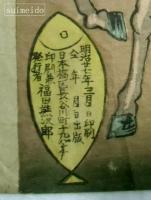 suimeido
明治廿七年三月 日印刷
仝 年 月 日出版
日本橋區長谷川町十九番地
印刷兼
發行者
福田熊次郎